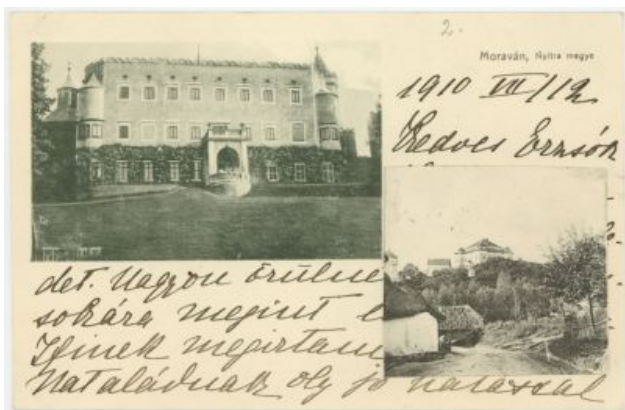 2.
Moraván, Nyitra megye
1910 VII/12
Kedves Erzsók
det. Nagyon örülne
sokára megint
Ifinek megirtam
Nataládnak oly jó hatással